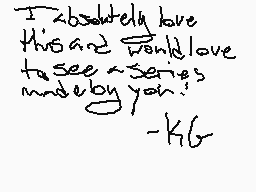 I absolutely love
this and would love
to see a series
made by you!
-KG